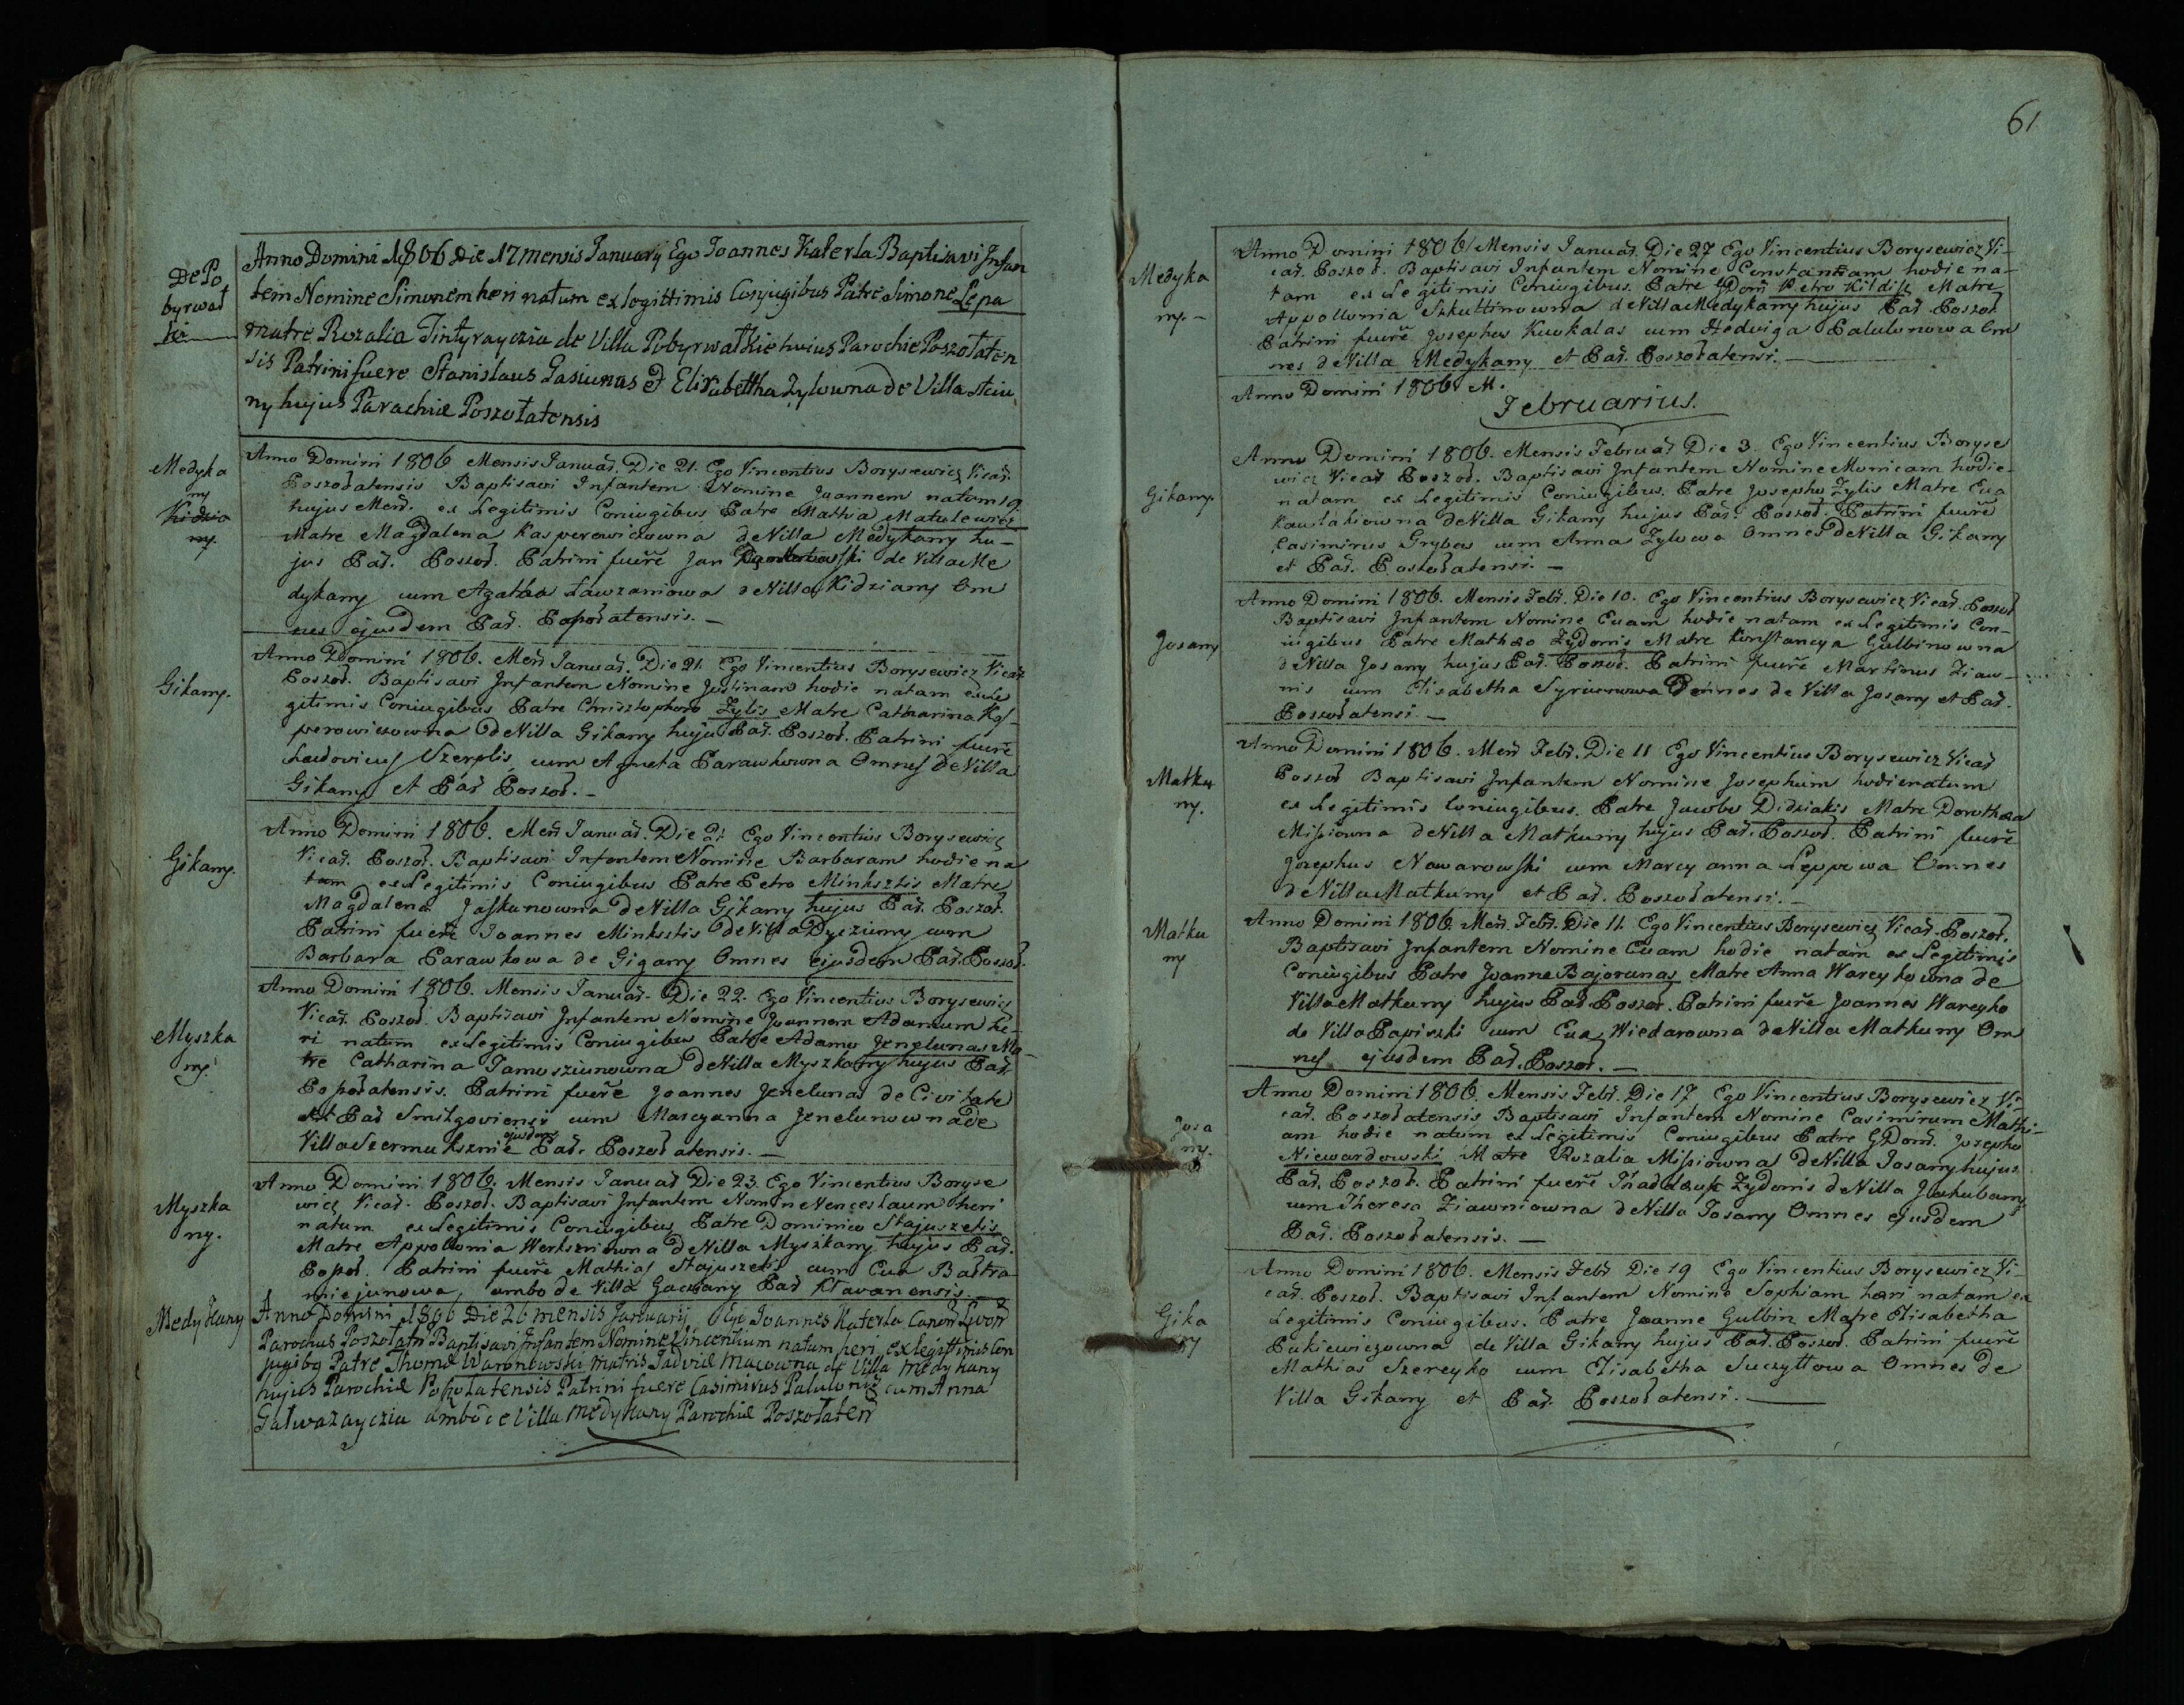 De Po
byrwat
kie
Anno Domini 1806 Die 17 mensis January Ego Joannes Katerla Baptisavi Infan
tem Nomine Simonem heri natum ex legittimis Conjugibus Patre Simone Lepa
matre Rozalia Tintyrayczia de Villa Pobyrwatkie huius Parochie Poszołaten
sis Patrini fuere Stanislaus Gasiunas et Elizabettha Zylowna de Villa
ny hujus Parachiæ Poszołatensis
Medyka
ny
Kidzia
ny.
Anno Domini 1806 Mensis Januar. Die 21. Ego Vincentius Borysewicz Vicar.
Poszołatensis Baptisavi Infantem Nomine Joannem natum 19
hujus Mens. ex Legitimis Coniugibus Patre Mathia Matulewicz
Matre Magdalena Kasperowiczowna de Villa Medykany hu-
jus Par. Poszoł. Patrini fuere Jan de Villa Me
dykany cum Agatha Ławzaniowa de Villa Kidziany Om
nes ejusdem Par. Poszołatensis. –
Gikany.
Anno Domini 1806. Mens Januar. Die 21. Ego Vincentius Borysewicz Vicar
Poszoł. Baptisavi Infantem Nomine Justinam hodie natam ex Le
gitimis Coniugibus Patre Christophoro Zylis Matre Catharina Kas-
perowiczowna de Villa Gikany hujus Par. Poszoł. Patrini fuere
Ludovicus Szerplis cum Agneta Parawkowna Omnes de Villa
Gikany et Par Poszoł. –
Gikany.
Anno Domini 1806. Mens Januar. Die 21 Ego Vincentius Borysewicz
Vicar. Poszoł. Baptisavi Infantem Nomine Barbaram hodie na
tam ex Legitimis Coniugibus Patre Petro Minksztis Matre
Magdalena Jaskunowna de Villa Gikany hujus Par. Poszoł.
Patrini fuere Joannes Minksztis de Villa Dycziuny cum
Barbara Parawkowa de Gigany Omnes ejusdem Par. Poszoł.
Myszka
ny.
Anno Domini 1806. Mensis Januar. Die 22. Ego Vincentius Borysewicz
Vicar. Poszoł. Baptisavi Infantem Nomine Joannem Adamum he-
ri natum ex Legitimis Coniugibus Patre Adamo Jenelunas Ma-
tre Catharina Tamosziunowna de Villa Myszkany hujus Par.
Poszołatensis. Patrini fuere Joannes Jenelunas de Civitate
et Par Smilgoviensis cum Marcyanna Jenelunowna de
Villa Szermuksznie ejusdem Par. Poszołatensis. –
Myszka
ny.
Anno Domini 1806. Mensis Januar Die 23. Ego Vincentius Boryse
wicz Vicar. Poszoł. Baptisavi Infantem Nomin Venceslaum heri
natum ex Legitimis Coniugibus Patre Dominico Stajuszelis
Matre Appollonia Werkszniowna de Villa Myszkany hujus Par.
Poszoł. Patrini fuere Mathias Stajuszelis cum Eva Bartra
miejunowa, ambo de Villa Par Kławanensis. –
Medykany
Anno Domini 1806 Die 26 mensis January Ego Joannes Katerla Canon Livon
Parochus Poszołatn Baptisavi Infantem Nomine Vincentium natum heri ex legittimis Con
jugibg Patre Thoma Waronowski matris Jadviæ Macowna de Villa Medykany
hujus Parochiæ Poszołatensis Patrini fuere Casimirus Palulonis cum Anna
Gałwazayczia ambo de Villa Medykany Parochiæ Poszołaten
61
Medyka
ny. –
Anno Domini 1806 Mensis Januar. Die 27 Ego Vincentius Borysewicz Vi-
car. Poszoł. Baptisavi Infantem Nomine Constantiam hodie na-
tam ex Legitimis Coniugibus. Patre GDom Petro Kildisz Matre
Appollonia Szkultinowna de Villa Medykany hujus Par Poszoł
Patrini fuere Josephus Kuokalas cum Hedviga Palulonowa Om
nes de Villa Medykany et Par. Poszołatensi. –
Anno Domini 1806 M.
Februarius.
Gikany.
Anno Domini 1806. Mensis Februar Die 3. Ego Vincentius Boryse
wicz Vicar Poszoł. Baptisavi Infantem Nomine Monicam hodie
natam ex Legitimis Coniugibus. Patre Josepho Zylis Matre Eva
Kawlakiowna de Villa Gikany hujus Par. Poszoł. Patrini fuere
Casimirus Grybas cum Anna Zylowa Omnes de Villa Gikany
et Par. Poszołatensi. –
Josany
Anno Domini 1806. Mensis Febr. Die 10. Ego Vincentius Borysewicz Vicar. Poszoł
Baptisavi Infantem Nomine Evam hodie natam ex Legitimis Con-
iugibus Patre Mathæo Zydonis Matre Konstancya Gulbinowna
de Villa Josany hujus Par. Poszoł. Patrini fuere Martinus Ziaw-
nis cum Elisabetha Omnes de Villa Josany et Par.
Poszołatensi. –
Matku
ny.
Anno Domini 1806. Mens Febr. Die 11 Ego Vincentius Borysewicz Vicar
Poszoł Baptisavi Infantem Nomine Josephum hodie natum
ex Legitimis Coniugibus. Patre Jacobo Didziakis Matre Dorothæa
Missiowna de Villa Matkuny hujus Par. Poszoł. Patrini fuere
Josephus Nawarowski cum Marcyanna Leppowa Omnes
de Villa Matkuny et Par. Poszołatensi. –
Matku
ny
Anno Domini 1806. Mens. Febr. Die 11. Ego Vincentius Borysewicz Vicar. Poszoł.
Baptisavi Infantem Nomine Evam hodie natam ex Legitimis
Coniugibus Patre Joanne Bajorunas Matre Anna Wareykowna de
Villa Matkuny hujus Par Poszoł. Patrini fuere Joannes Wareyko
de Villa Papiszki cum Eva Wiedarowna de Villa Matkuny Om
nes ejusdem Par. Poszoł. –
Josa
ny.
Anno Domini 1806. Mensis Febr. Die 17 Ego Vincentius Borysewicz Vi-
car. Poszołatensis Baptisavi Infantem Nomine Casimirum Mathi-
am hodie natum ex Legitimis Coniugibus Patre GDom. Josepho
Niewardowski Matre Rozalia Missiowna de Villa Josany hujus
Par. Poszoł. Patrini fuere Thaddæus Zydonis de Villa Jakubany
cum Theresa Ziawniowna de Villa Josany Omnes ejusdem
Par. Poszołatensis. –
Gika
ny
Anno Domini 1806. Mensis Febr Die 19 Ego Vincentius Borysewicz Vi-
car. Poszoł. Baptisavi Infantem Nomine Sophiam heri natam ex
Legitimis Coniugibus. Patre Joanne Gulbin Matre Elisabetha
Pukiewiczowna de Villa Gikany hujus Par. Poszoł. Patrini fuere
Mathias Szereyko cum Elisabetha Suczyłłowa Omnes de
Villa Gikany et Par. Poszołatensi. –